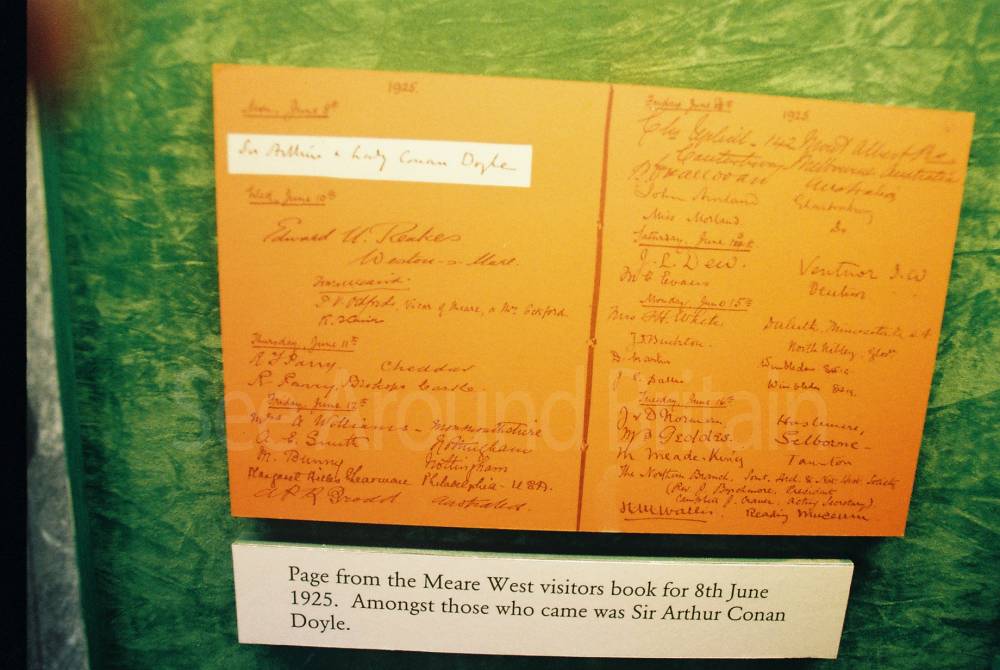 1925.
Mon. June 8th
Sir Arthur & Lady Conan Doyle
Wed. June 10th
Edward U.
Weston-s-Mare.
Vicar of Meare, & Mrs
Thursday, June 11th
R Parry Cheddar
R. Parry, Bishops Castle.
Friday, June 12th
Mrs A Williams - Monmouthshire
A. E. Smith Nottingham
M. Bunny Nottingham
Margaret Philadelphia - U.S.A.
Australia.
1925
Friday June
142 Mont Albert Rd
Canterbury Melbourne Australia
Australia
John Morland Glastonbury
Miss Morland Do
Saturday, June
J. L. Dew. Ventnor I.W
M E Evans
Monday, June 15th
Mrs F H. White. Duluth, Minnesota
North Nibley, Glos
D. Martin Wimbledon
J. E. Wimbledon
Tuesday, June 16th
J & D Norman, Haslemere,
M Geddes. Selborne -
M Meade-King Taunton
The Northern Branch, Som. Arch. & Nat. Hist. Society
(Rev J. President
Campbell J. Acting Secretary)
H.M. Wallis. Reading Museum
See Around Britain
Page from the Meare West visitors book for 8th June
1925. Amongst those who came was Sir Arthur Conan
Doyle.